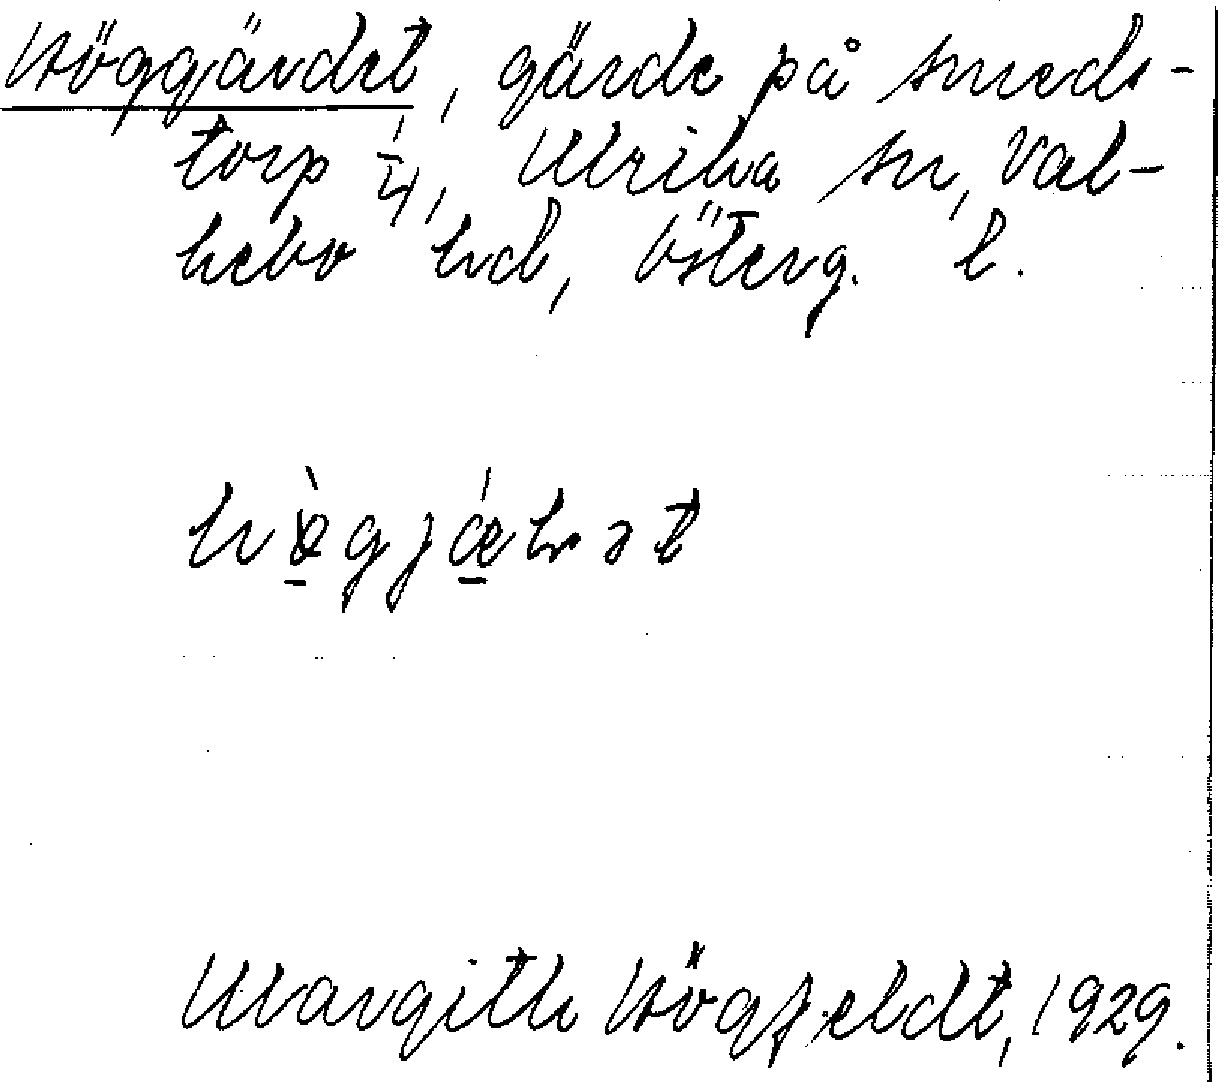 Höggärdet, gärde på Smeds-
torp 1/4, Ulrika sn, Val-
kebo hd, Österg. l.
hø̀gjǽrət
Margith Högfeldt, 1929.